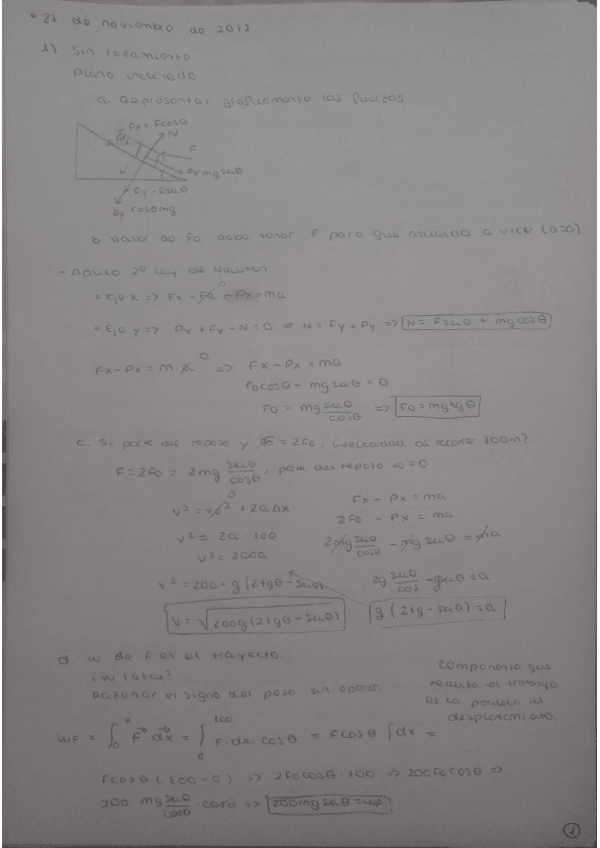 • 22 de noviembre de 2012.
1) Sin rozamiento
Plano inclinado
a. Representar gráficamente las fuerzas.
Fx = Fcosθ
N
F
Px mg senθ
Fy = Fsenθ
Py cosθmg
b. Valor de Fo debe tener F para que ascienda a v=cte (a=0)
- Aplico 2º Ley de Newton
= Eje x => Fx - Fa - Px = ma
0
= Eje y => Py + Fy - N = 0 => N = Fy + Py => N = Fsenθ + mgcosθ
Fx - Px = m·a 0 => Fx - Px = ma
Focosθ - mg senθ = 0
Fo = mg senθ/cosθ => Fo = mgtgθ
c. Si parte del reposo y F = 2Fo, ¿velocidad al recorrer 100m?
F = 2Fo = 2mg senθ/cosθ, parte del reposo vo = 0
v² = vo² + 2aΔx
0
Fx - Px = ma
v² = 2a · 100
2Fo - Px = ma
v² = 200a
2mg senθ/cosθ - mg senθ = ma
v² = 200 · g (2tgθ - senθ)
2g senθ/cos - gsenθ = a
v = √200g(2tgθ - senθ)
g (2tg - senθ) = a
d. W de F en el trayecto.
¿W total?
Razonar el signo del peso sin operar.
Componente que
realiza el trabajo
es la paralela al
desplazamiento.
WF = ∫0x F dx = ∫0100 F·dx·cosθ = Fcosθ ∫dx =
Fcosθ (100-0) => 2Focosθ·100 => 200Focosθ =>
200 mg senθ/cosθ · cosθ => 200mg senθ = WF
1